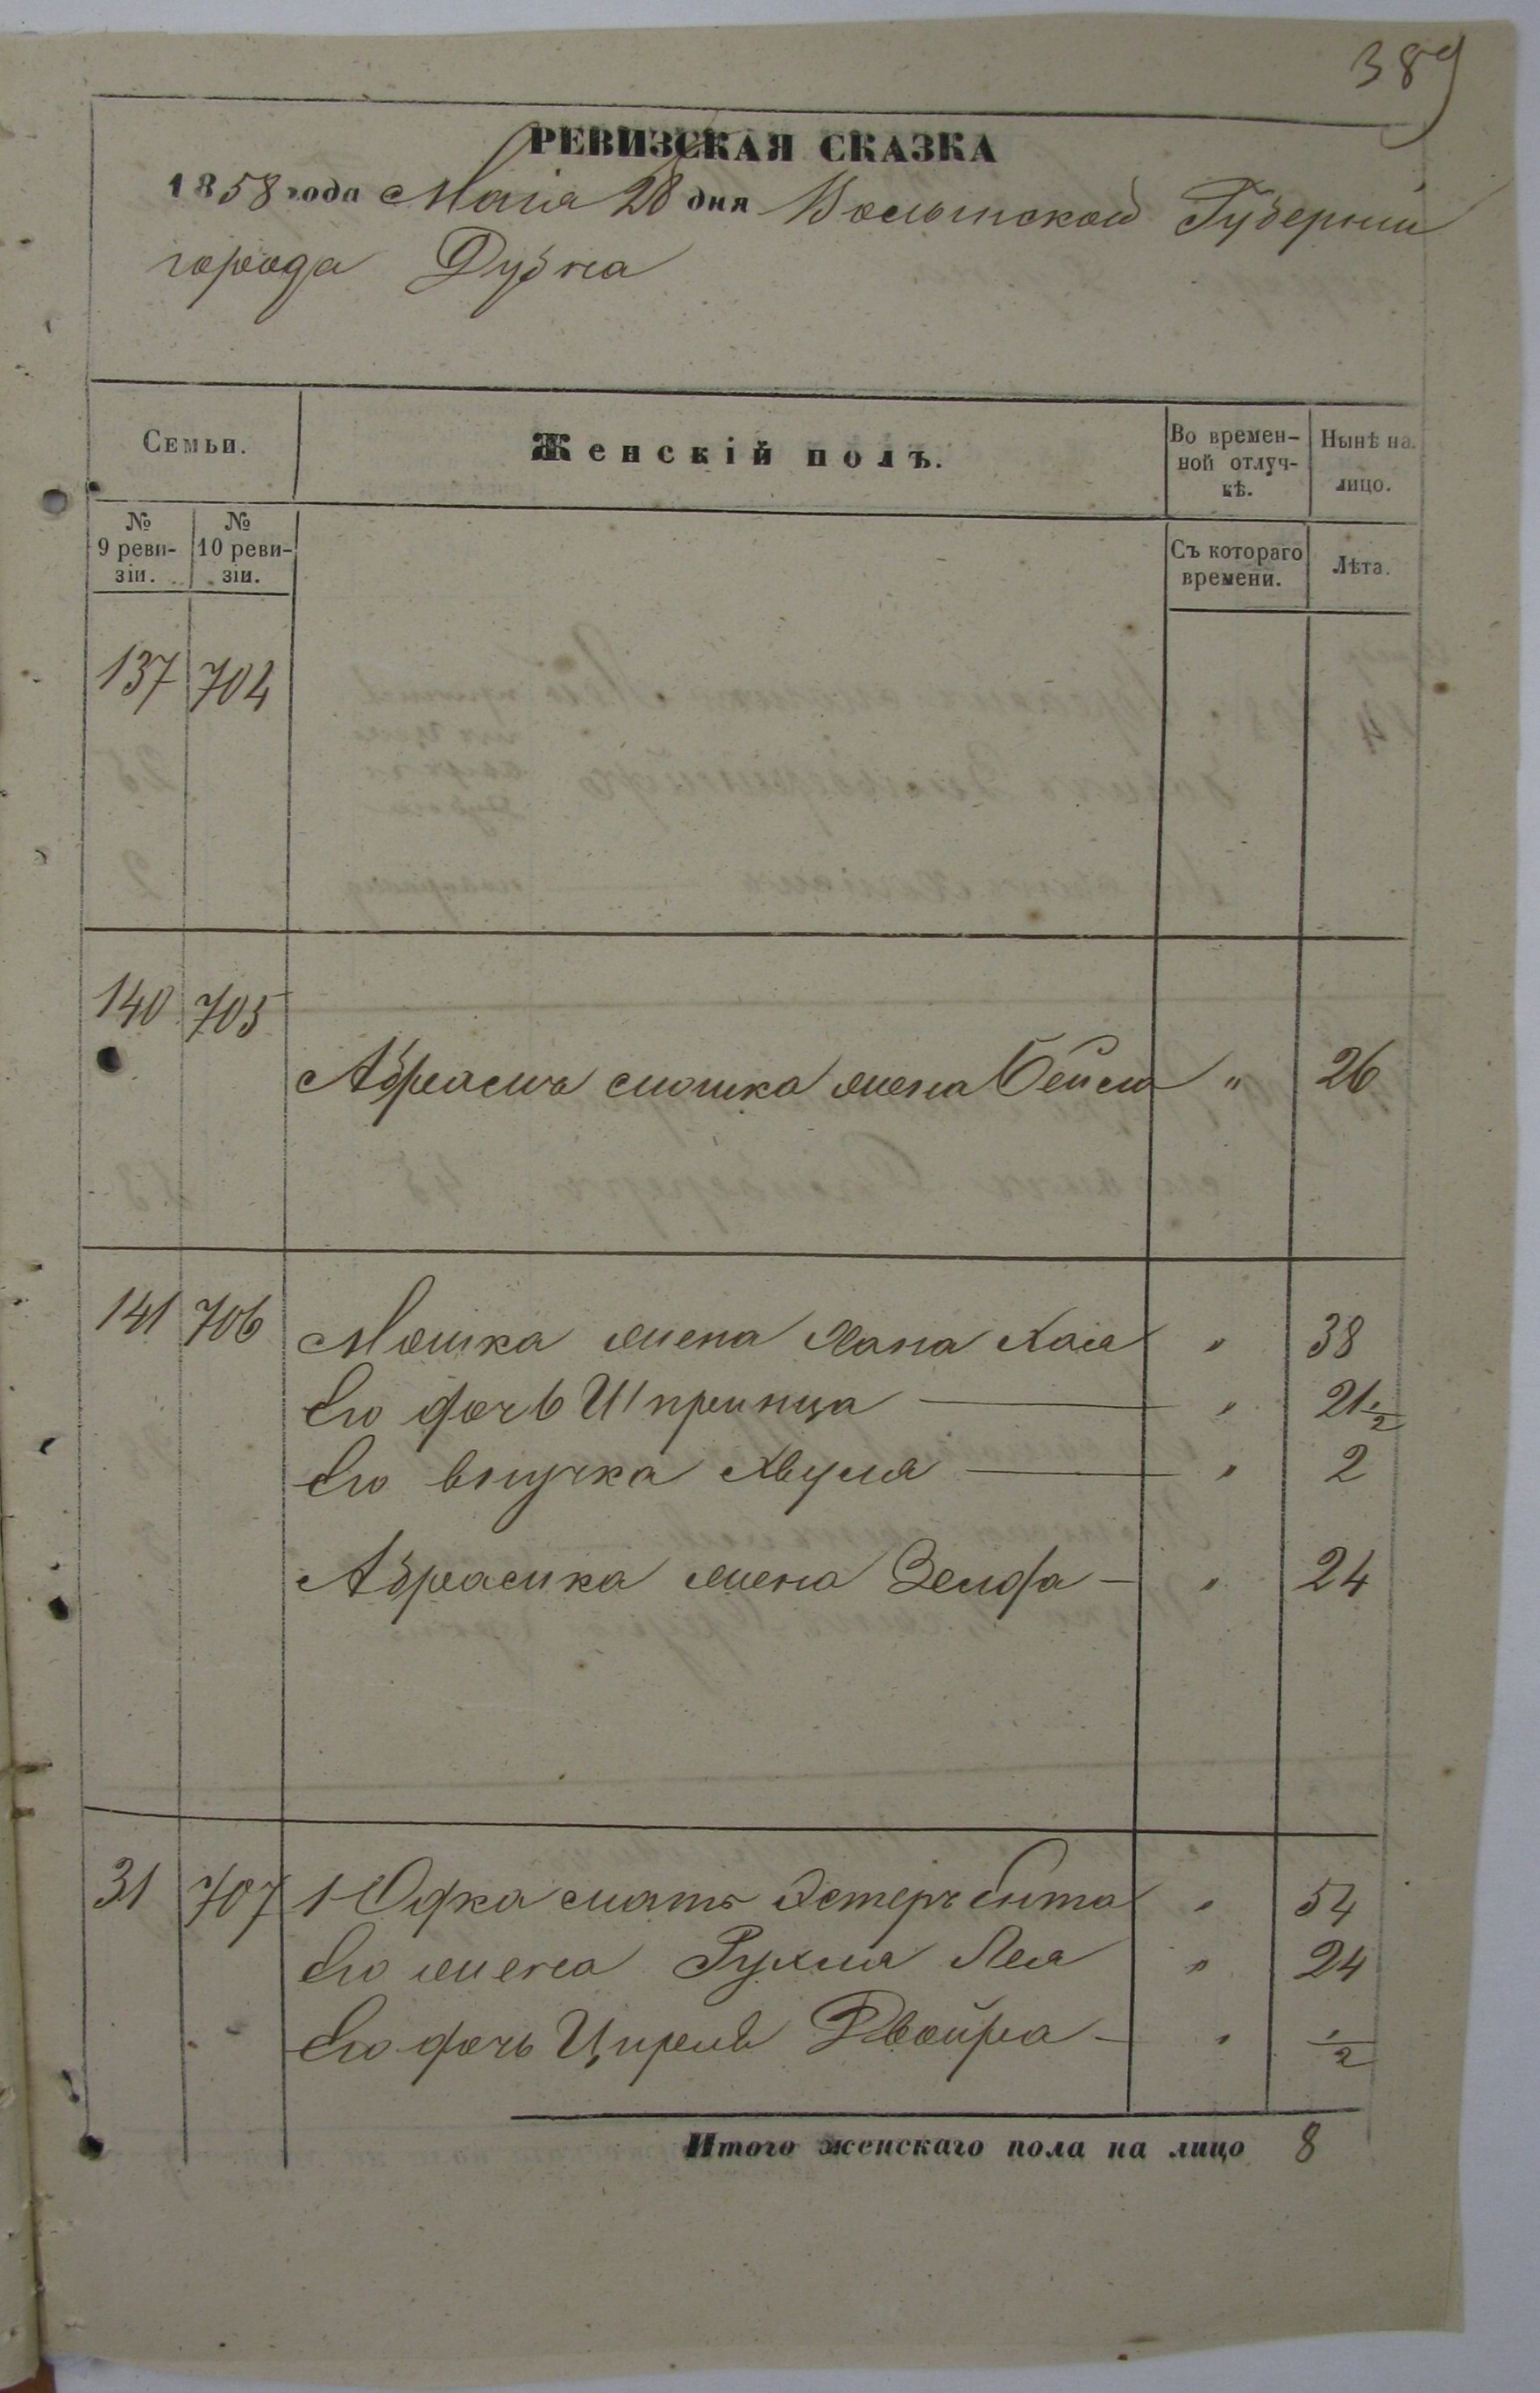 389
РЕВИЗСКАЯ СКАЗКА
1858 года Маія 28 дня Волынской Губерніи
города Дубна
Семьи.
Женскій полъ.
Во времен-
ной отлуч-
кѣ.
Ныпѣ на
лицо.
№
9 реви-
зіи.
№
10 реви-
зіи.
Съ котораго
времени.
Лѣта.
137 704
140 705
Абрамъ Мошка жена Бейла " 26
141 706 Мошка жена Хана Хая " 38
Его дочь Шпринца — " 21 1/2
Его внучка — " 2
Абрамка жена Зелда — " 24
31 707 Юдка мать Эстеръ Гитта " 54
Его жена Рухля Лея " 24
Его дочь Ципра Двойра — " 1/2
Итого женскаго пола на лицо 8